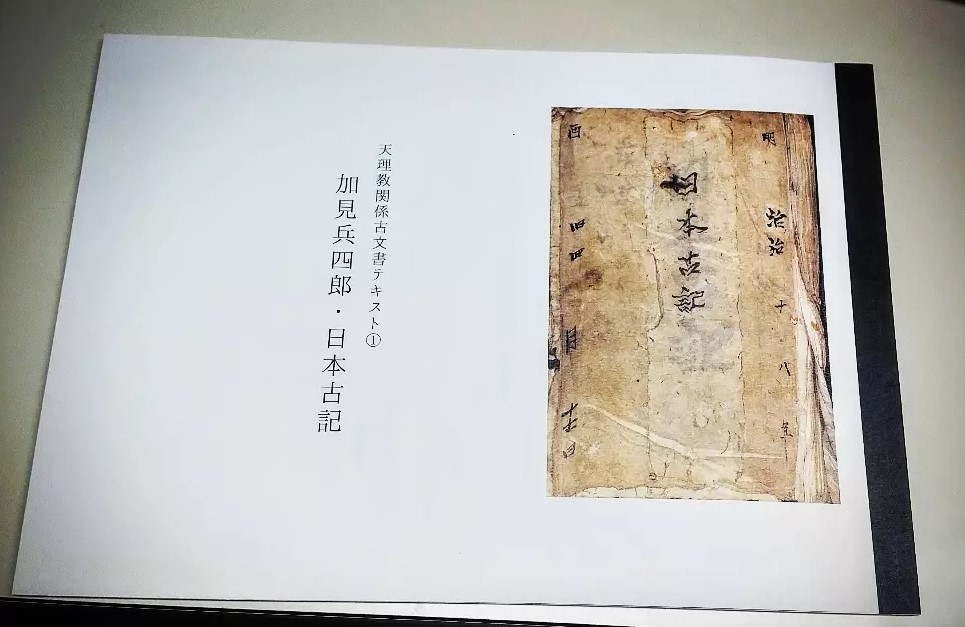 明治十八年
日本古記
天理教関係古文書テキスト①
加見兵四郎・日本古記